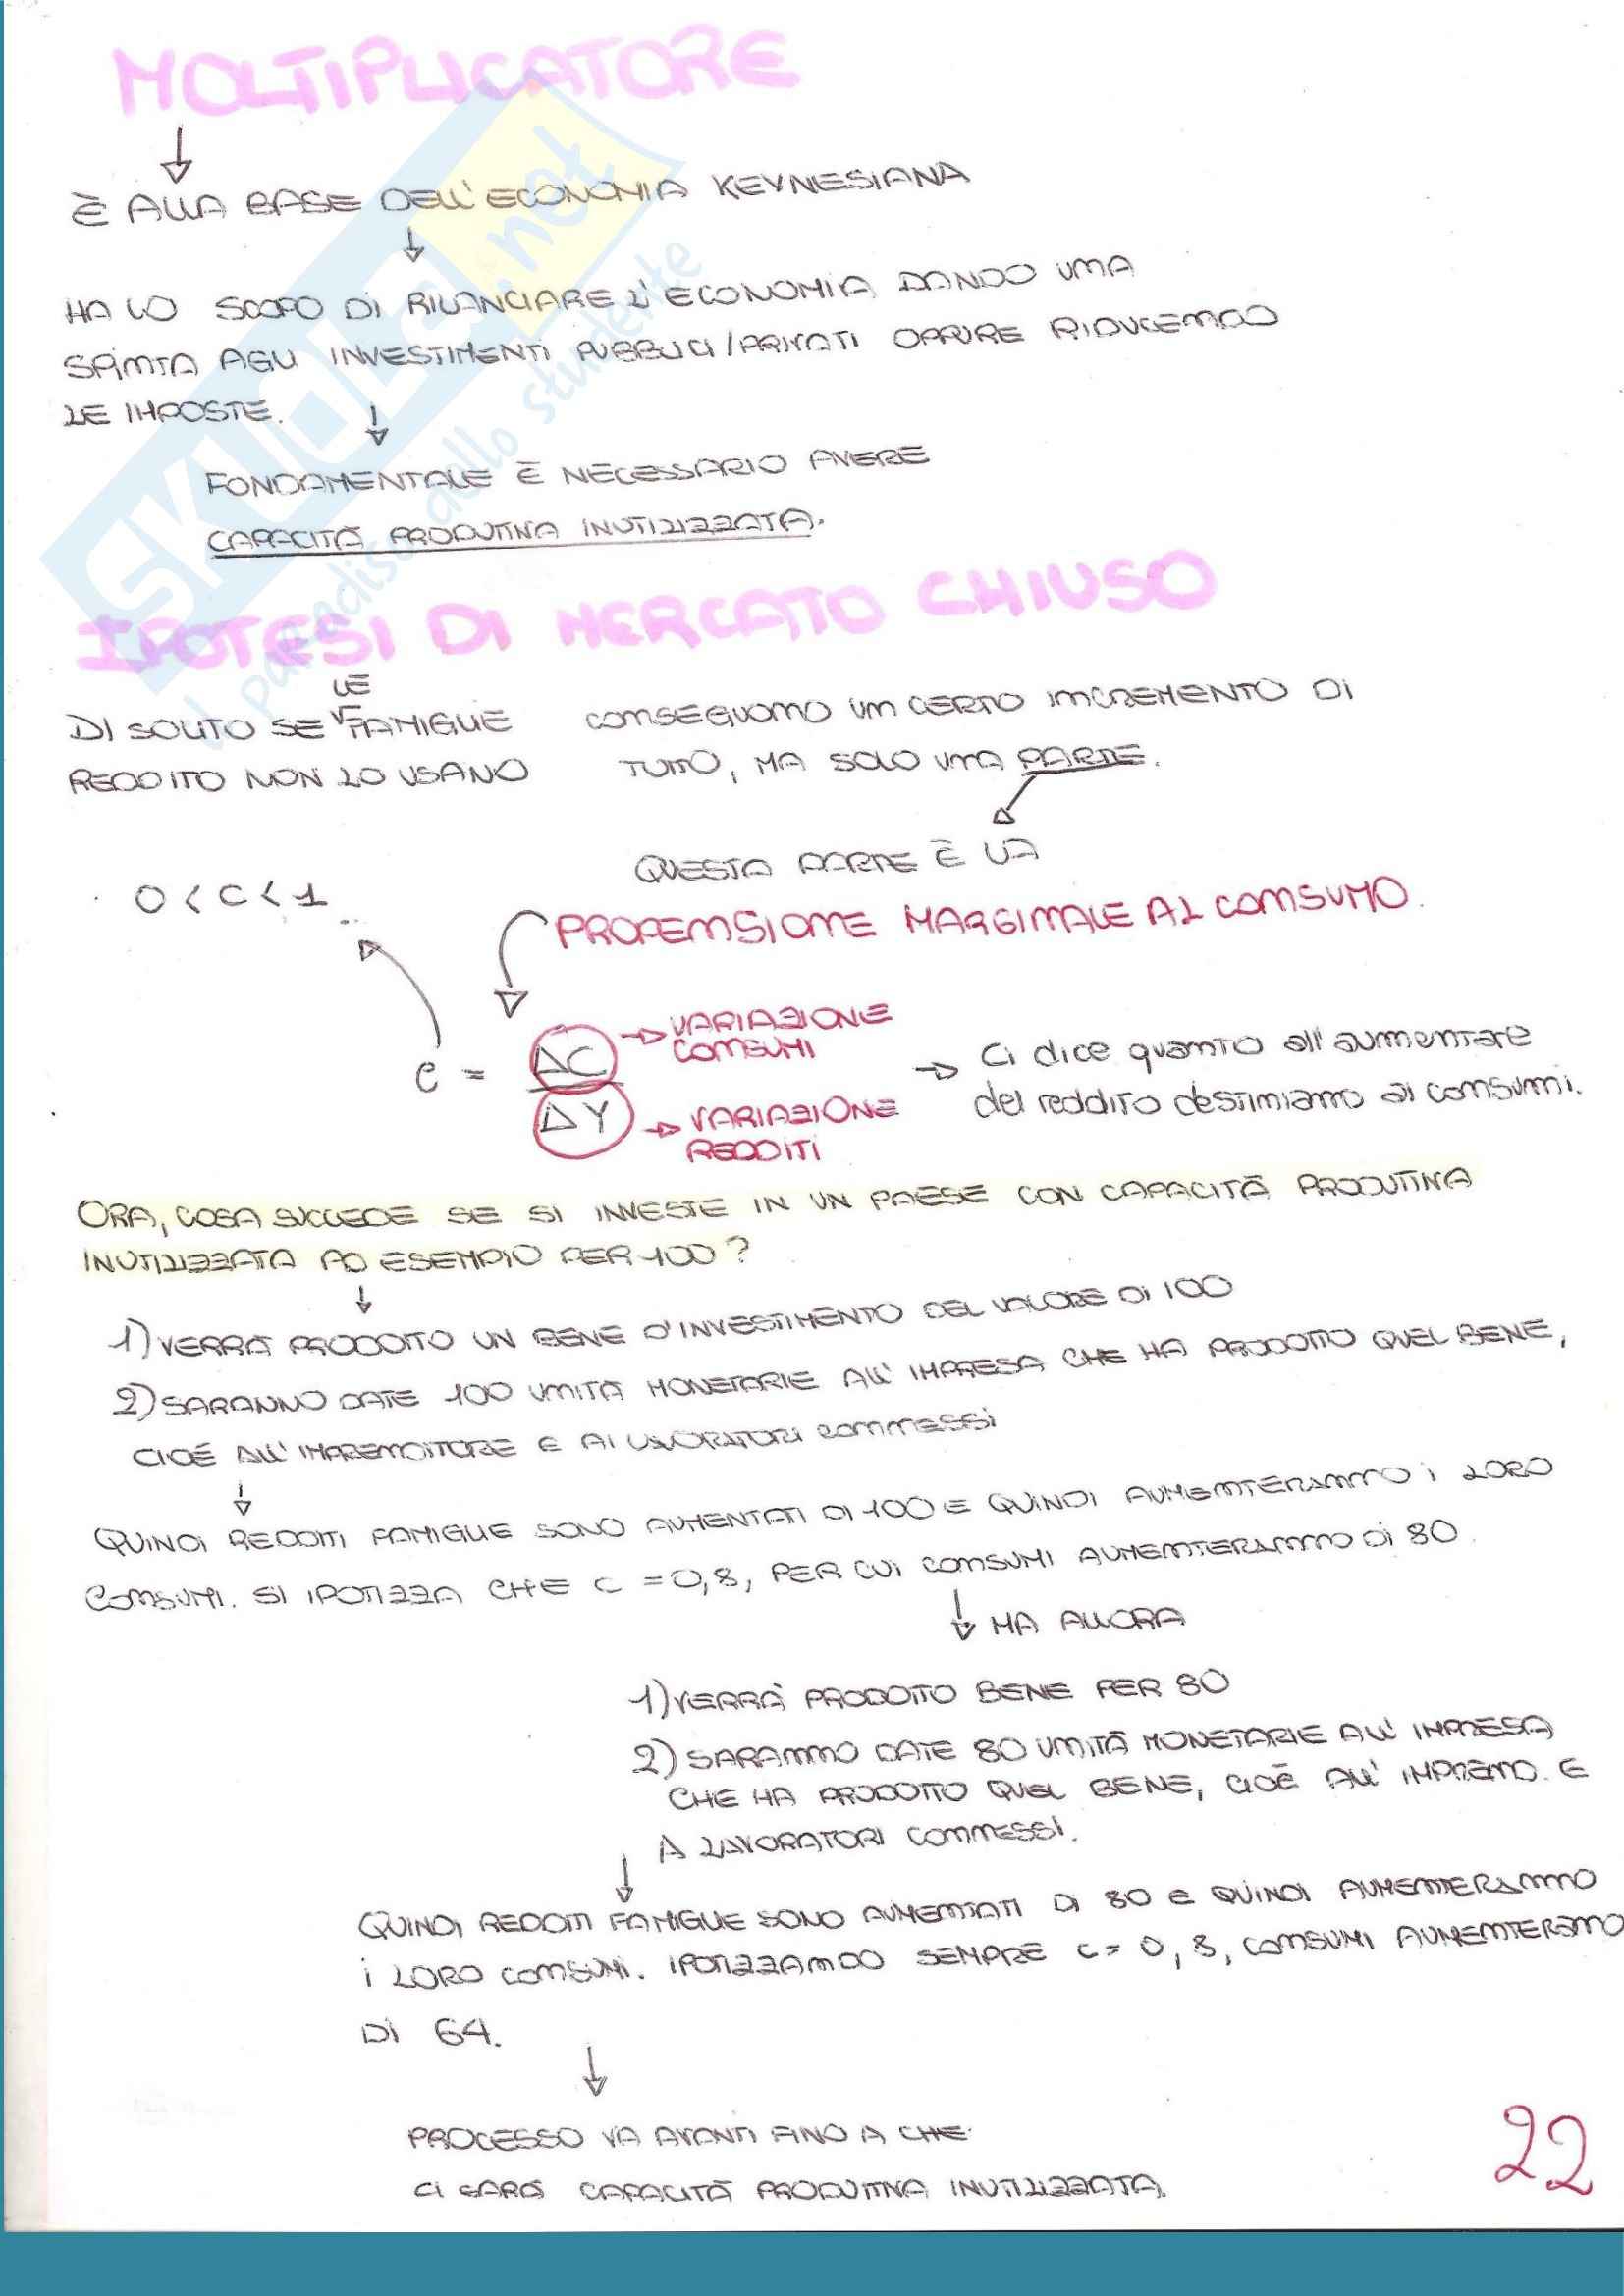 MOLTIPLICATORE
È ALLA BASE DELL'ECONOMIA KEYNESIANA
HA LO SCOPO DI RILANCIARE L'ECONOMIA DANDO UNA
SPINTA AGLI INVESTIMENTI PUBBLICI/PRIVATI OPPURE RIDUCENDO
LE IMPOSTE.
FONDAMENTALE È NECESSARIO AVERE
CAPACITÀ PRODUTTIVA INUTILIZZATA.
IPOTESI DI MERCATO CHIUSO
DI SOLITO SE LE FAMIGLIE CONSEGUONO UN CERTO INCREMENTO DI
REDDITO NON LO USANO TUTTO, MA SOLO UNA PARTE.
QUESTA PARTE È LA
0 < C < 1
PROPENSIONE MARGINALE AL CONSUMO.
c = ΔC / ΔY
VARIAZIONE
CONSUMI
VARIAZIONE
REDDITI
Ci dice quanto all'aumentare
del reddito destiniamo ai consumi.
ORA, COSA SUCCEDE SE SI INVESTE IN UN PAESE CON CAPACITÀ PRODUTTIVA
INUTILIZZATA AD ESEMPIO PER 100?
1) VERRÀ PRODOTTO UN BENE D'INVESTIMENTO DEL VALORE DI 100
2) SARANNO DATE 100 UNITÀ MONETARIE ALL'IMPRESA CHE HA PRODOTTO QUEL BENE,
CIOÉ ALL'IMPRENDITORE E AI LAVORATORI COMMESSI
QUINDI REDDITI FAMIGLIE SONO AUMENTATI DI 100 E QUINDI AUMENTERANNO I LORO
CONSUMI. SI IPOTIZZA CHE C = 0,8, PER CUI CONSUMI AUMENTERANNO DI 80.
MA ALLORA
1) VERRÀ PRODOTTO BENE PER 80
2) SARANNO DATE 80 UNITÀ MONETARIE ALL'IMPRESA
CHE HA PRODOTTO QUEL BENE, CIOÈ ALL'IMPREND. E
A LAVORATORI COMMESSI.
QUINDI REDDITI FAMIGLIE SONO AUMENTATI DI 80 E QUINDI AUMENTERANNO
I LORO CONSUMI. IPOTIZZANDO SEMPRE C = 0,8, CONSUMI AUMENTERANNO
DI 64.
PROCESSO VA AVANTI FINO A CHE
CI SARÀ CAPACITÀ PRODUTTIVA INUTILIZZATA.
22
SKUOLA.net
il paradiso dello studente